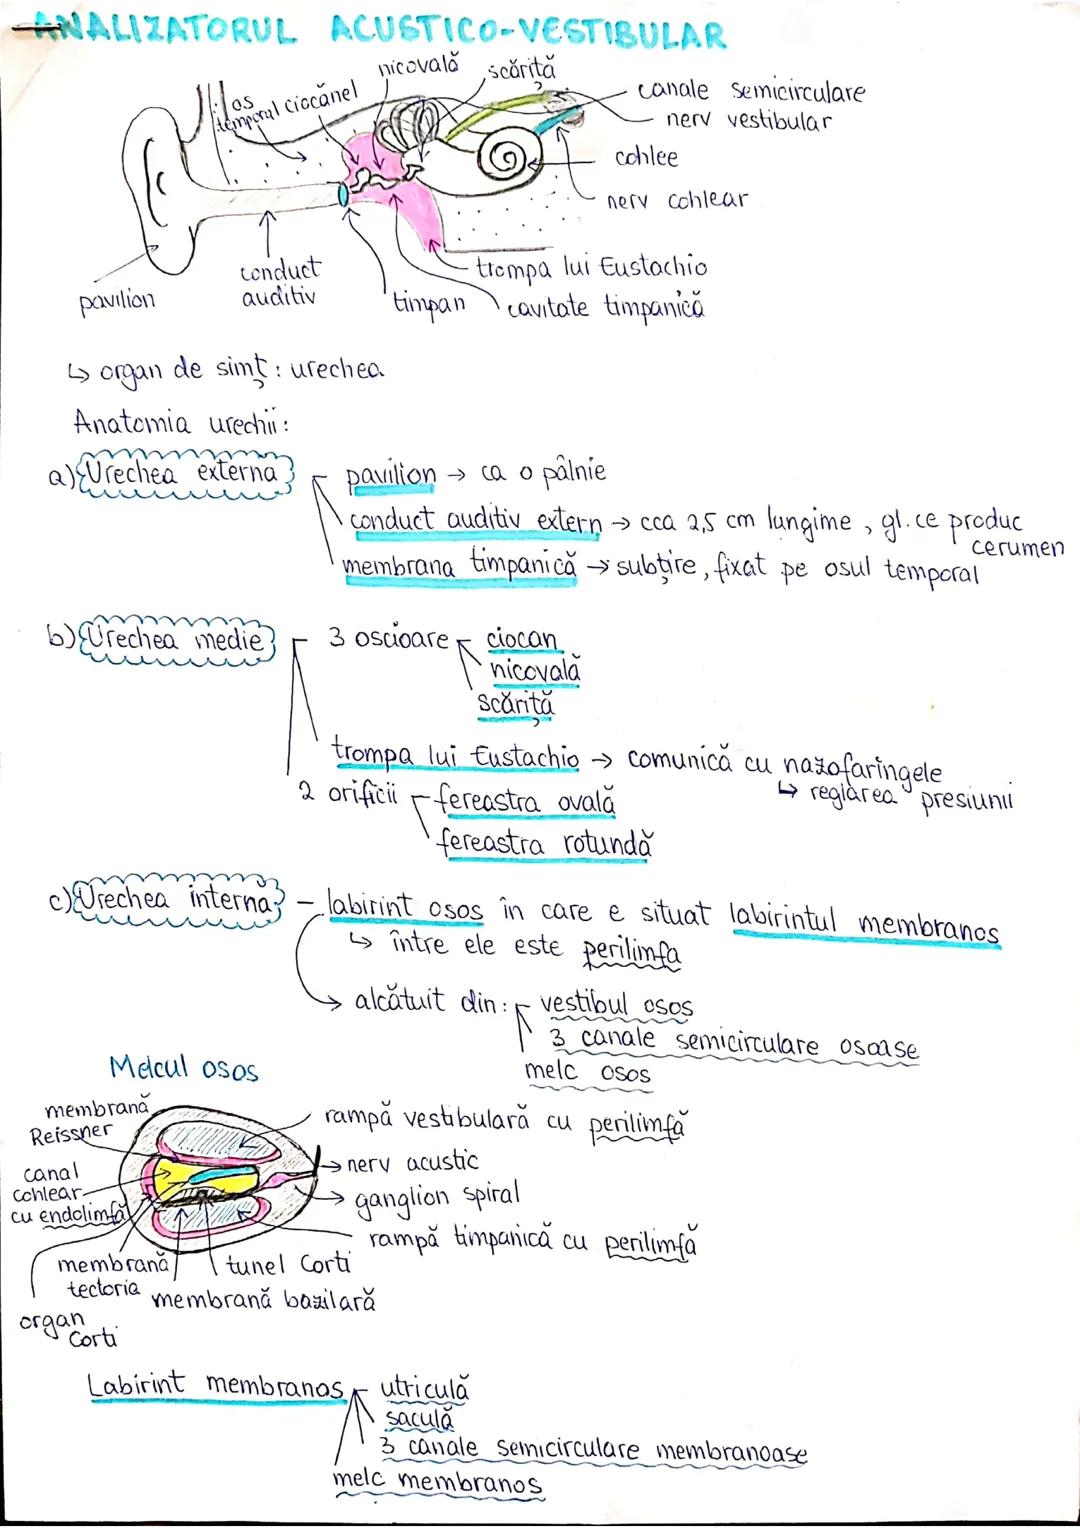 ANALIZATORUL ACUSTICO-VESTIBULAR
os temporal
ciocănel
nicovală
scăriță
canale semicirculare
nerv vestibular
cohlee
nerv cohlear
trompa lui Eustachio
cavitate timpanică
timpan
conduct auditiv
pavilion
↳ organ de simț: urechea
Anatomia urechii:
a) Urechea externă
pavilion → ca o pâlnie
conduct auditiv extern → cca 2,5 cm lungime, gl. ce produc cerumen
membrana timpanică → subțire, fixat pe osul temporal
b) Urechea medie
3 oscioare
ciocan
nicovală
scăriță
trompa lui Eustachio → comunică cu nazofaringele
↳ reglarea presiunii
2 orificii
fereastra ovală
fereastra rotundă
c) Urechea internă - labirint osos în care e situat labirintul membranos
↳ între ele este perilimfa
→ alcătuit din:
vestibul osos
3 canale semicirculare osoase
melc osos
Melcul osos
membrană Reissner
canal cohlear cu endolimfă
membrană tectoria
organ Corti
rampă vestibulară cu perilimfă
nerv acustic
ganglion spiral
rampă timpanică cu perilimfă
tunel Corti
membrană bazilară
Labirint membranos
utriculă
saculă
3 canale semicirculare membranoase
melc membranos